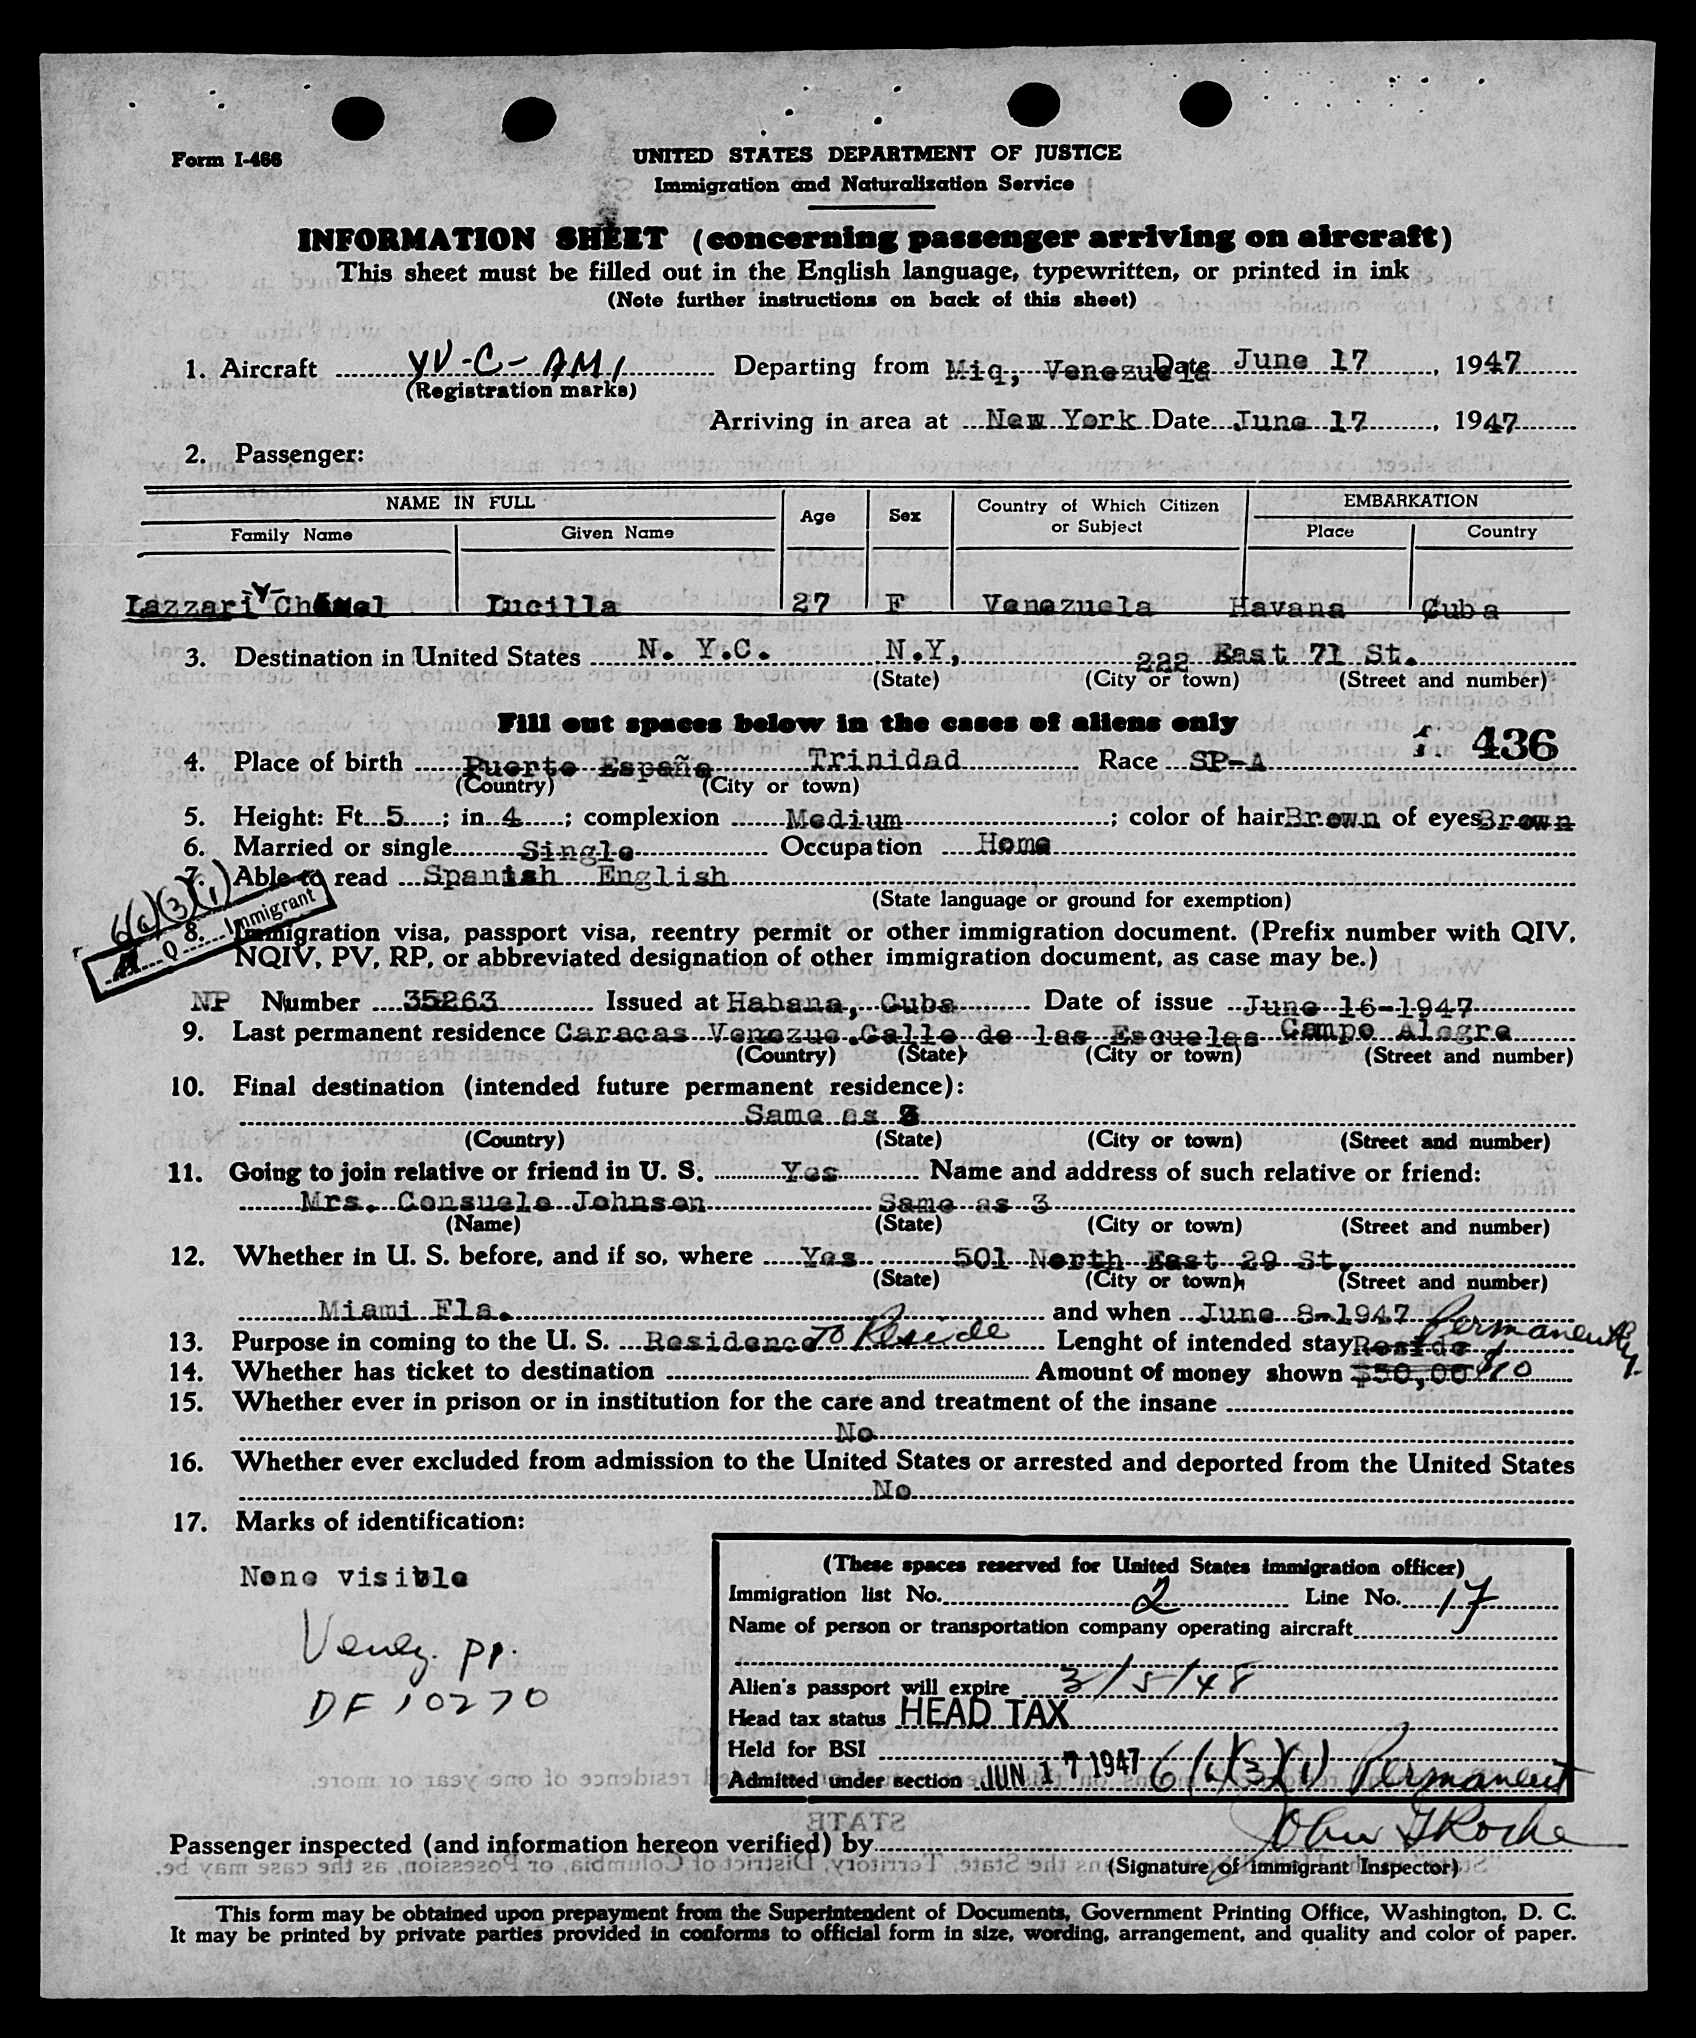 Form I-466
UNITED STATES DEPARTMENT OF JUSTICE
Immigration and Naturalization Service
INFORMATION SHEET (concerning passenger arriving on aircraft)
This sheet must be filled out in the English language, typewritten, or printed in ink
(Note further instructions on back of this sheet)
1. Aircraft YV-C-AM1 Departing from Miq, Venezuela Date June 17, 1947
(Registration marks)
Arriving in area at New York Date June 17, 1947
2. Passenger:
NAME IN FULL Age Sex Country of Which Citizen or Subject EMBARKATION
Family Name Given Name Place Country
Lazzari Lucilla 27 F Venezuela Havana Cuba
3. Destination in United States N. Y.C. N.Y, 222 East 71 St.
(State) (City or town) (Street and number)
Fill out spaces below in the cases of aliens only
436
4. Place of birth Puerto España Trinidad Race SP-A
(Country) (City or town)
5. Height: Ft. 5; in. 4; complexion Medium; color of hair Brown of eyes Brown
6. Married or single Single Occupation Home
7. Able to read Spanish English
(State language or ground for exemption)
6(a)(3)(1)
Q Immigrant
8. Immigration visa, passport visa, reentry permit or other immigration document. (Prefix number with QIV,
NQIV, PV, RP, or abbreviated designation of other immigration document, as case may be.)
NP Number 35263 Issued at Habana, Cuba Date of issue June 16-1947
9. Last permanent residence Caracas Venezue.Calle de las Escuelas Campo Alegre
(Country) (State) (City or town) (Street and number)
10. Final destination (intended future permanent residence):
Same as 3
(Country) (State) (City or town) (Street and number)
11. Going to join relative or friend in U. S. Yes Name and address of such relative or friend:
Mrs. Consuelo Johnson Same as 3
(Name) (State) (City or town) (Street and number)
12. Whether in U. S. before, and if so, where Yes 501 North East 29 St.
(State) (City or town) (Street and number)
Miami Fla. and when June 8-1947
13. Purpose in coming to the U. S. Residence To Reside Lenght of intended stay Reside Permanently.
14. Whether has ticket to destination Amount of money shown $50,00 $10
15. Whether ever in prison or in institution for the care and treatment of the insane
No
16. Whether ever excluded from admission to the United States or arrested and deported from the United States
No
17. Marks of identification:
None visible
Venez. pp.
DF 10270
(These spaces reserved for United States immigration officer)
Immigration list No. 2 Line No. 17
Name of person or transportation company operating aircraft
Alien's passport will expire 3/5/48
Head tax status HEAD TAX
Held for BSI
Admitted under section JUN 17 1947 6(a)(3)(1) Permanent
Passenger inspected (and information hereon verified) by John
(Signature of immigrant Inspector)
This form may be obtained upon prepayment from the Superintendent of Documents, Government Printing Office, Washington, D. C.
It may be printed by private parties provided in conforms to official form in size, wording, arrangement, and quality and color of paper.